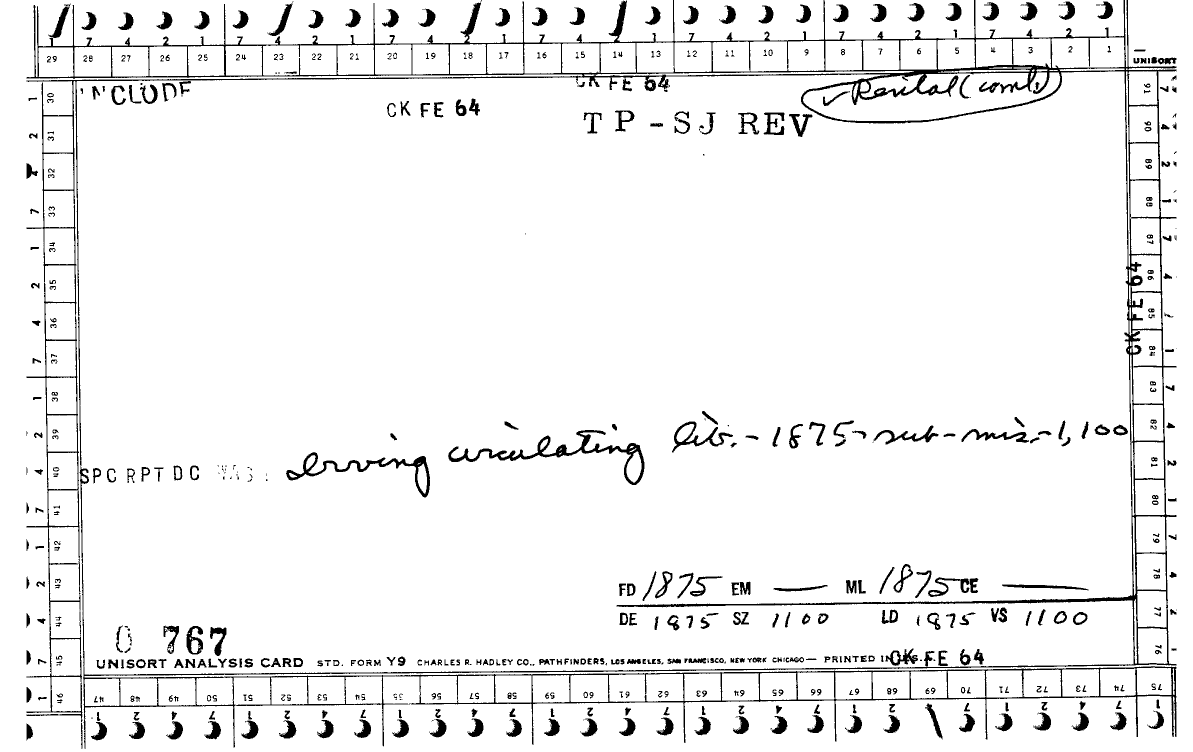 7 4 2 1 7 4 2 1 7 4 2 1 7 4 2 1 7 4 2 1 7 4 2 1 7 4 2 1
29 28 27 26 25 24 23 22 21 20 19 18 17 16 15 14 13 12 11 10 9 8 7 6 5 4 3 2 1
UNISORT
CK FE 64
Rental (coml.)
CK FE 64
TP-SJ REV
30 31 32 33 34 35 36 37 38 39 40 41 42 43 44 45 46
91 90 89 88 87 86 85 84 83 82 81 80 79 78 77 76
CK FE 64
SPC RPT DC WAS. Irving circulating lib. - 1875 - sub - mis. - 1,100
FD 1875 EM — ML 1875 CE —
DE 1875 SZ 1100 LD 1875 VS 1100
0 767
UNISORT ANALYSIS CARD STD. FORM Y9 CHARLES R. HADLEY CO., PATHFINDERS, LOS ANGELES, SAN FRANCISCO, NEW YORK CHICAGO — PRINTED IN
CK FE 64
47 48 49 50 51 52 53 54 55 56 57 58 59 60 61 62 63 64 65 66 67 68 69 70 71 72 73 74 75